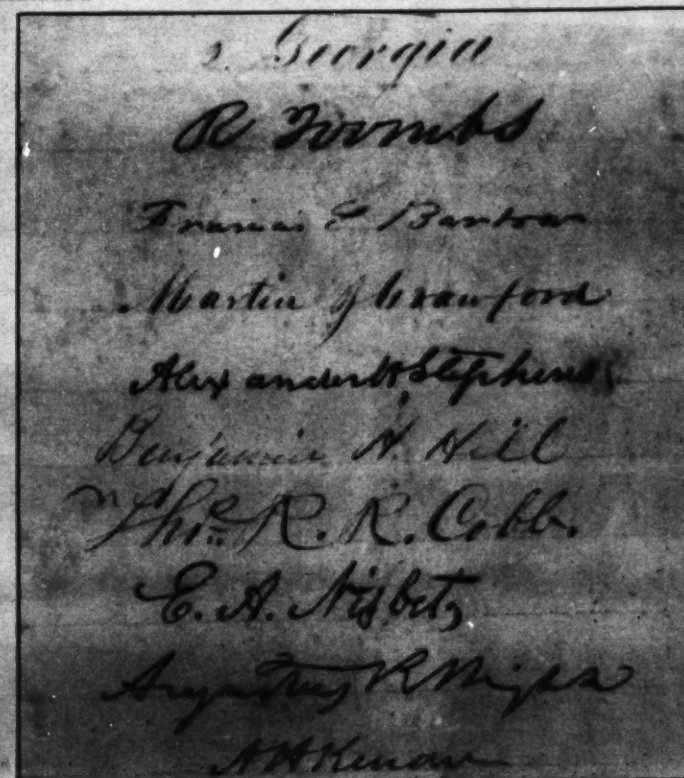 Georgia
R Toombs
Francis S Bartow
Martin J Crawford
Alexander H Stephens
Benjamin H. Hill
Thos. R. R. Cobb.
E. A. Nisbet,
Augustus R Wright
A H Kenan